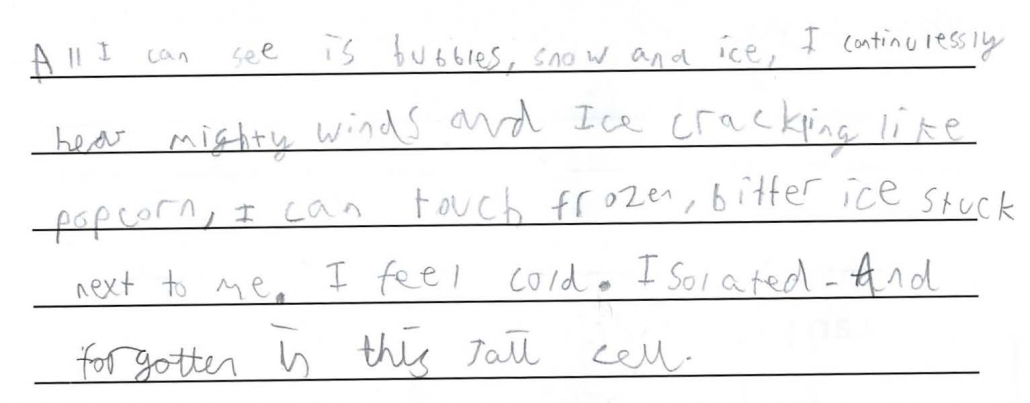 All I can see is bubbles, snow and ice, I continulessly
hear mighty winds and Ice crackling like
popcorn, I can touch frozen, bitter ice stuck
next to me. I feel cold. Isolated - And
forgotten in this Jail cell.